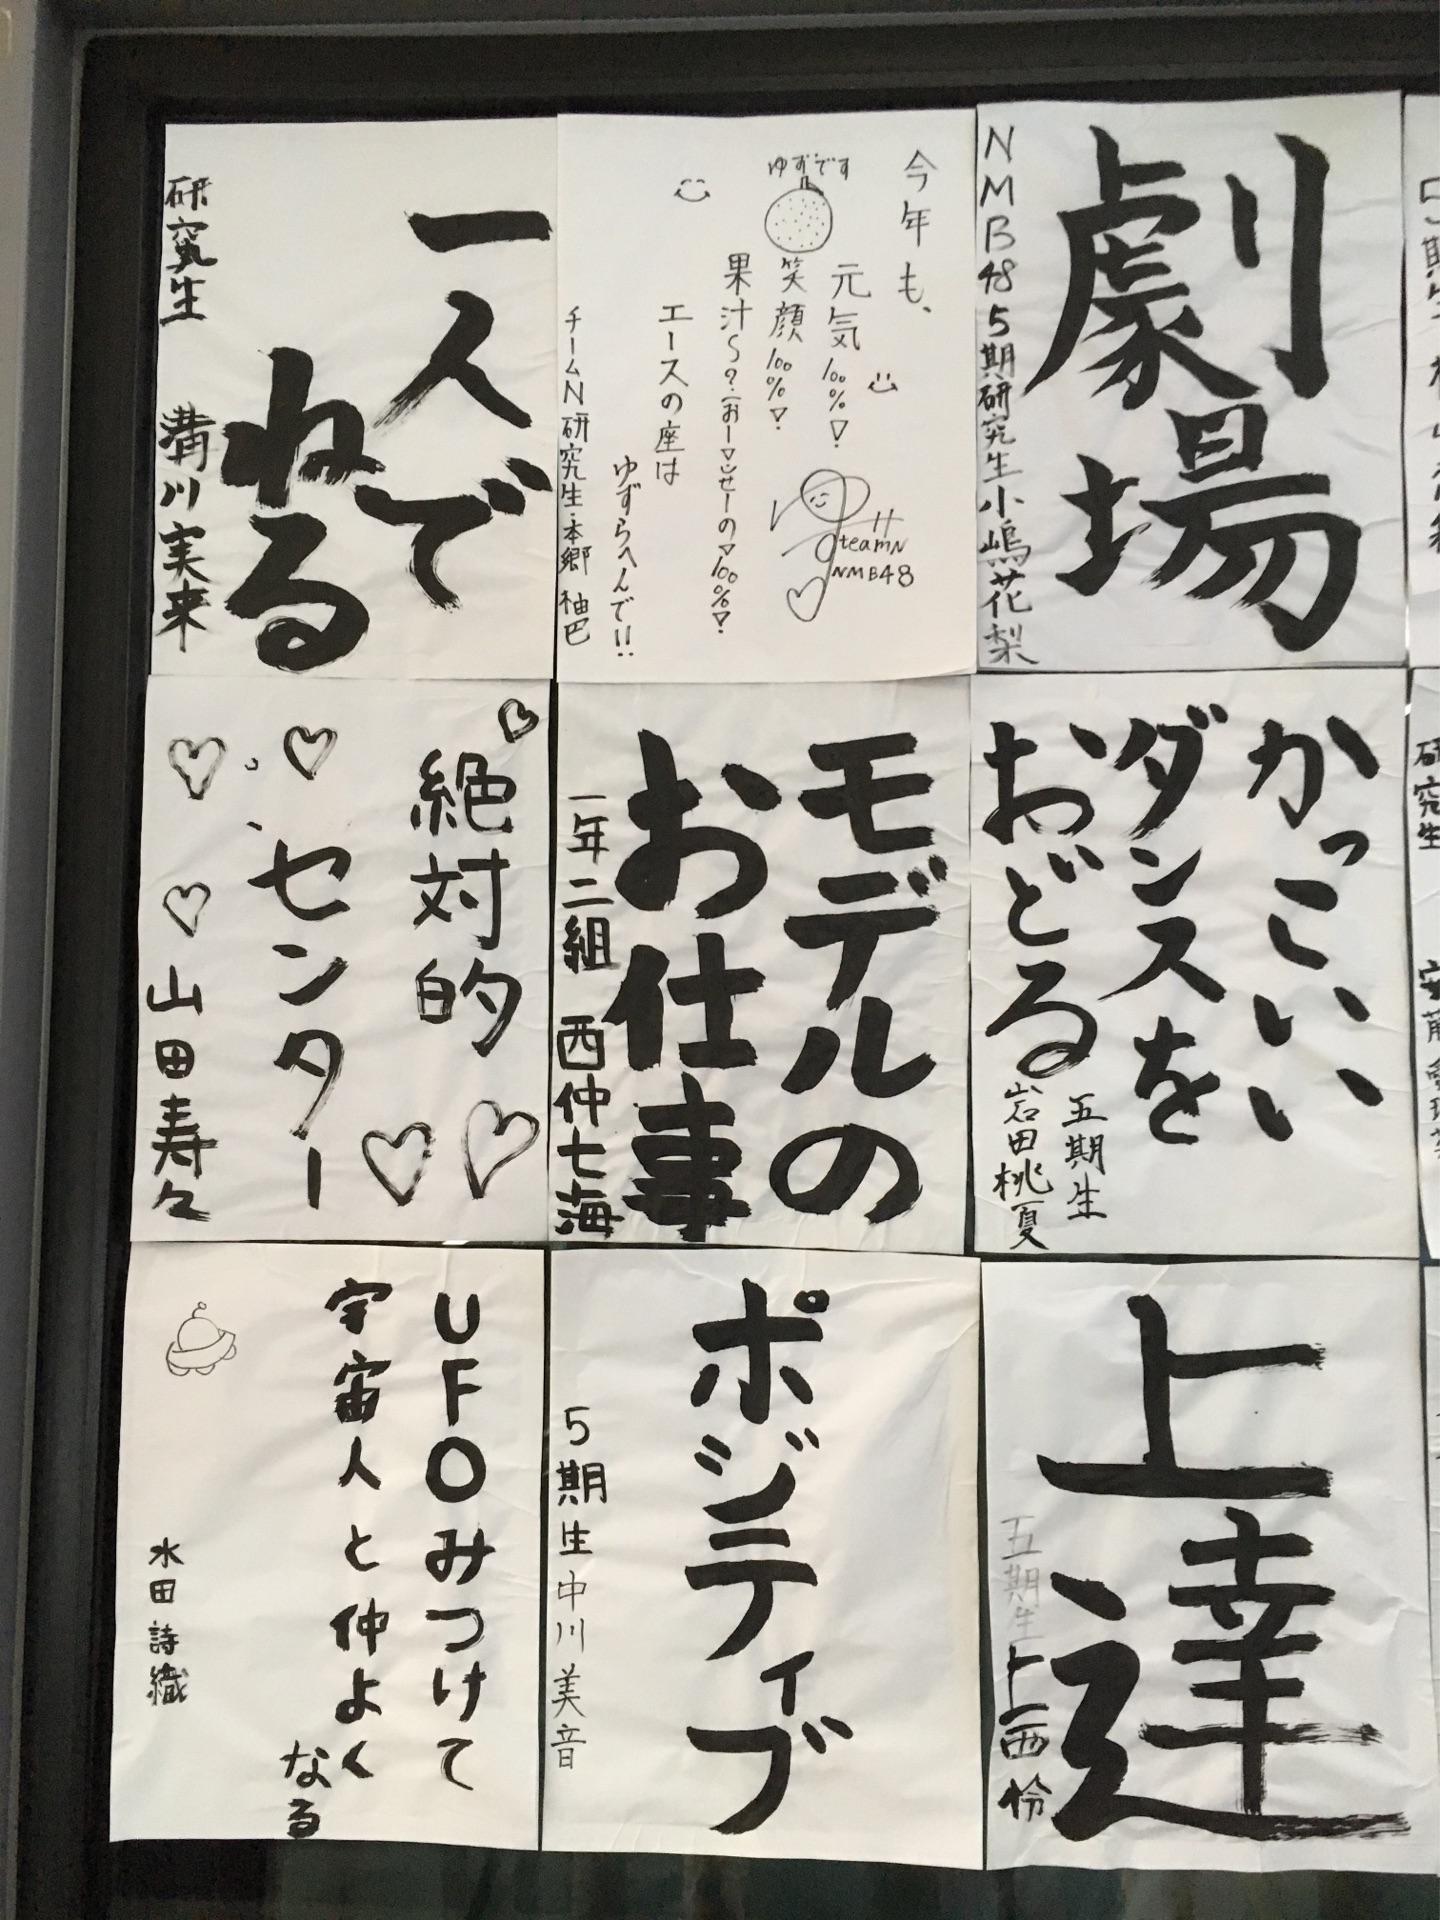 劇場
NMB48 5期研究生 小嶋花梨
今年も、
元気100%!
笑顔100%!
ゆずです
果汁〜?
エースの座は
ゆずらへんで!!
チームN 研究生・本郷 柚巴
teamN
NMB48
一人で
ねる
研究生 溝川実来
かっこいい
ダンスを
おどる
五期生
岩田桃夏
モデルの
お仕事
一年二組 西仲七海
絶対的
センター
山田寿々
上達
五期生 上西怜
ポジティブ
5期生 中川美音
UFOみつけて
宇宙人と仲よく
なる
水田詩織
研究生